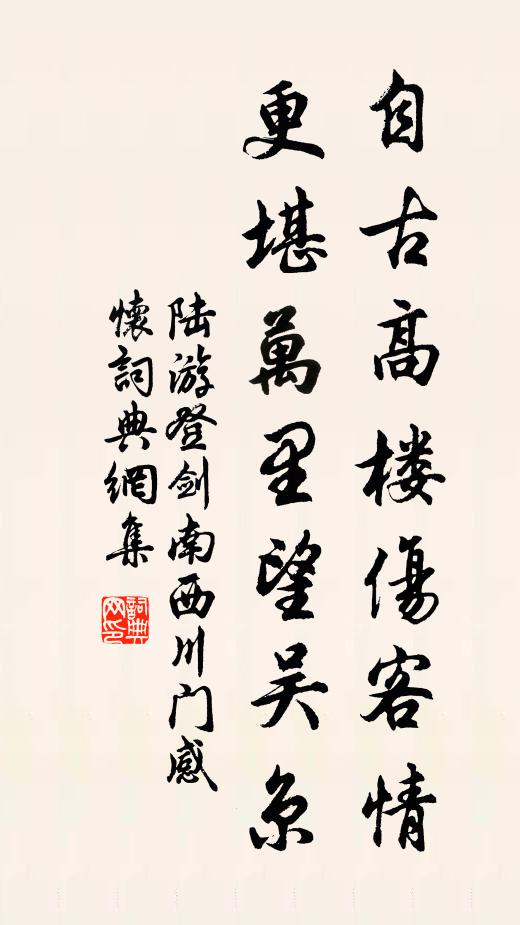 自古高楼傷客情
更堪萬里望吴京
陆游登剑南西川门感
懷詞典網集
詞典
网印